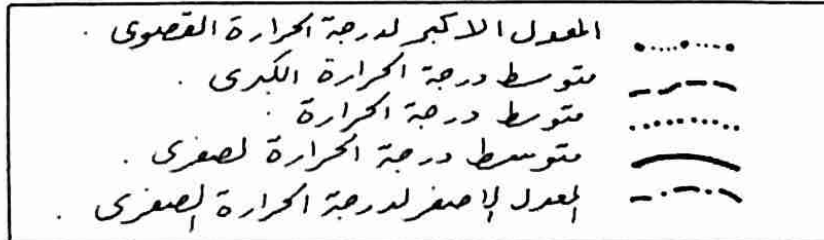 المعدل الاكبر لدرجة الحرارة القصوى .
متوسط درجة الحرارة الكبرى .
متوسط درجة الحرارة .
متوسط درجة الحرارة لصغرى .
المعدل الاصغر لدرجة الحرارة الصغرى .